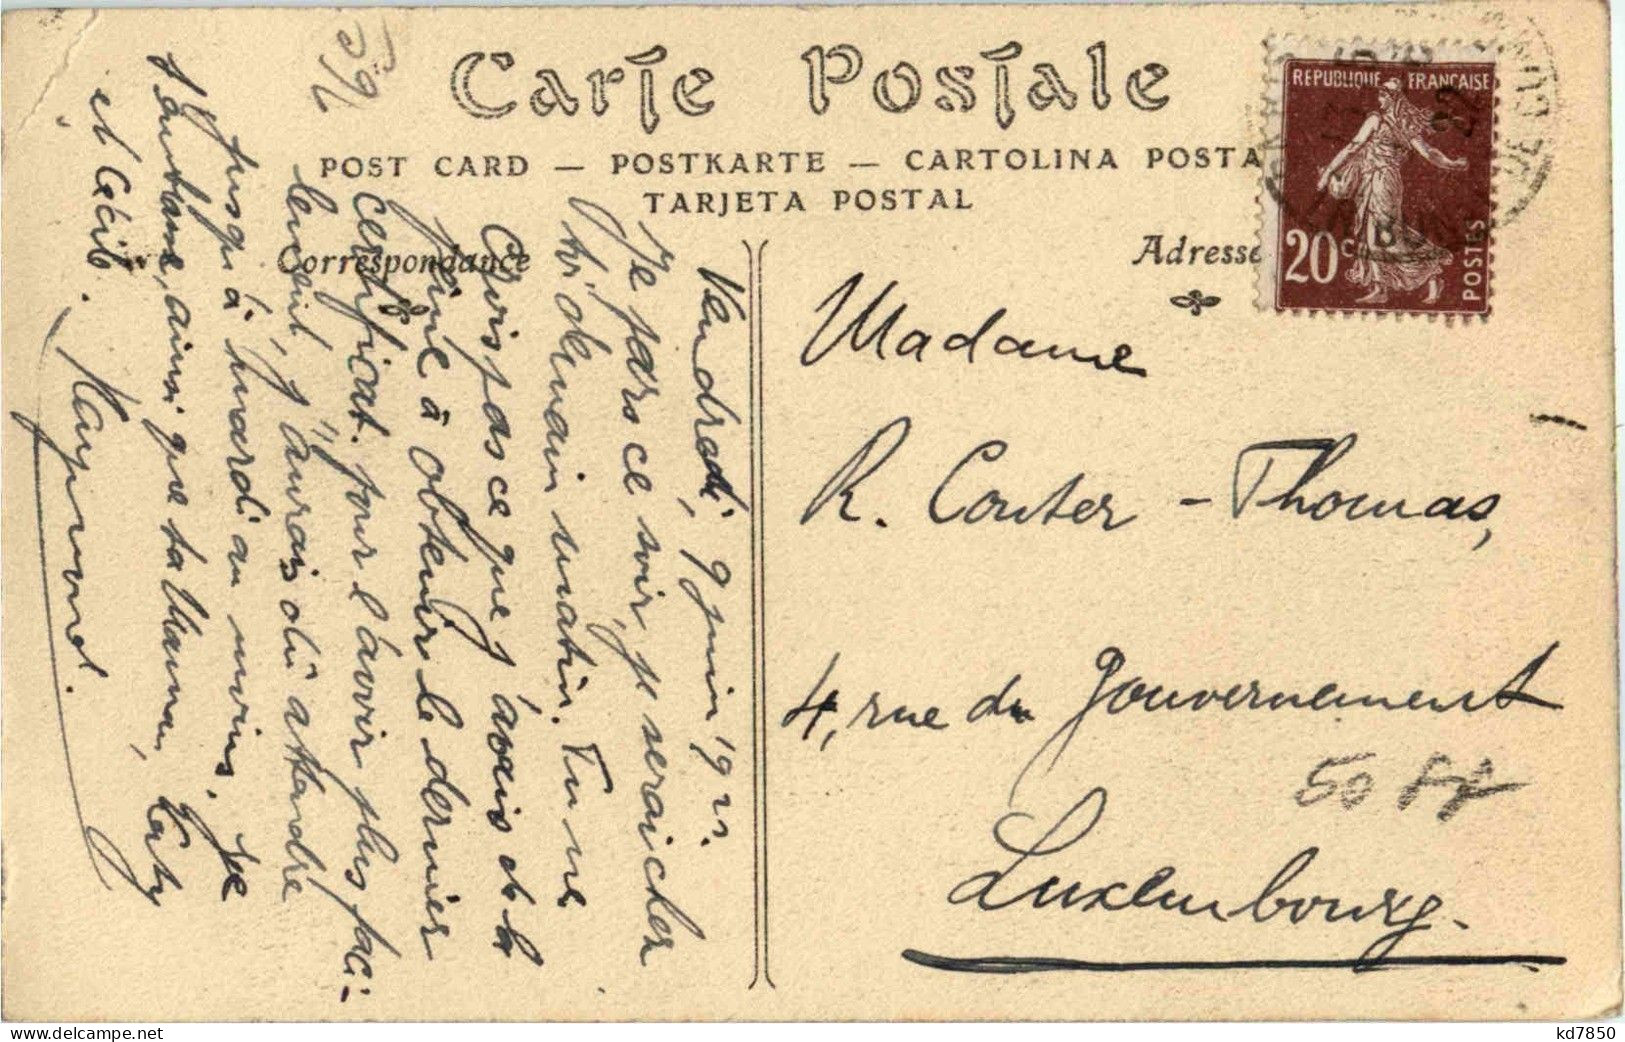 Carte Postale
POST CARD — POSTKARTE — CARTOLINA POSTA
TARJETA POSTAL
Correspondance
Adresse
REPUBLIQUE FRANÇAISE
20c
POSTES
Vendredi, 9 juin 19
Je pars ce soir, je serai chez
toi demain matin. Tu ne
crois pas ce que j'avais de la
peine à obtenir le dernier
certificat. Pour l'avoir plus faci-
lement, j'aurais dû attendre
jusqu'à mardi au moins. Je
t'embrasse, ainsi que ta Maman, Caty
et Cécile.
Raymond.
Madame
R. Conter-Thomas,
4, rue du Gouvernement
Luxembourg.
kd7850